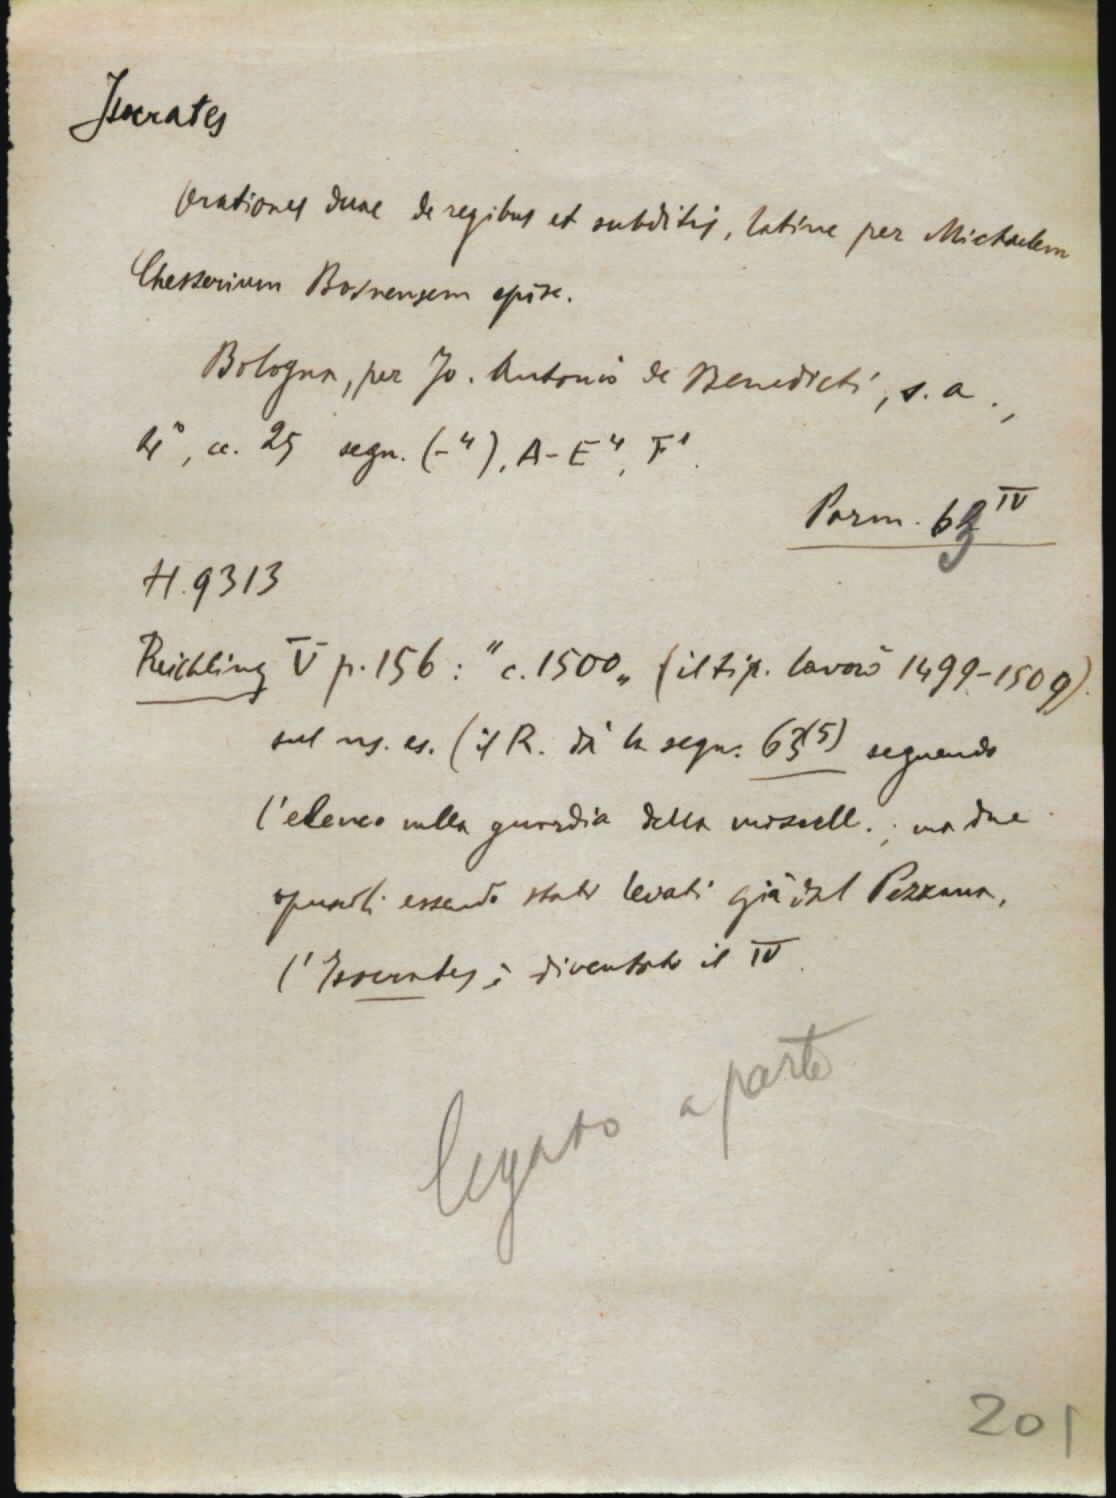 Isocrates
Orationes duae de regibus et subditis, latine per Michaelem
Chesserium Bosnensem episc.
Bologna, per Jo. Antonio de Benedicti, s. a.,
4°, cc. 25 segn. (-⁴), A-E⁴, F¹.
Parm. 63 IV
H. 9313
Reichling V p. 156: "c. 1500„ (il tip. lavorò 1499-1509).
sul ns. es. (il R. dà la segn. 63(5) seguendo
l'elenco nella guardia della miscell.; ma due
opuscoli essendo stati levati già dal Pezzana,
l'Isocrates è diventato il IV.
legato a parte
201